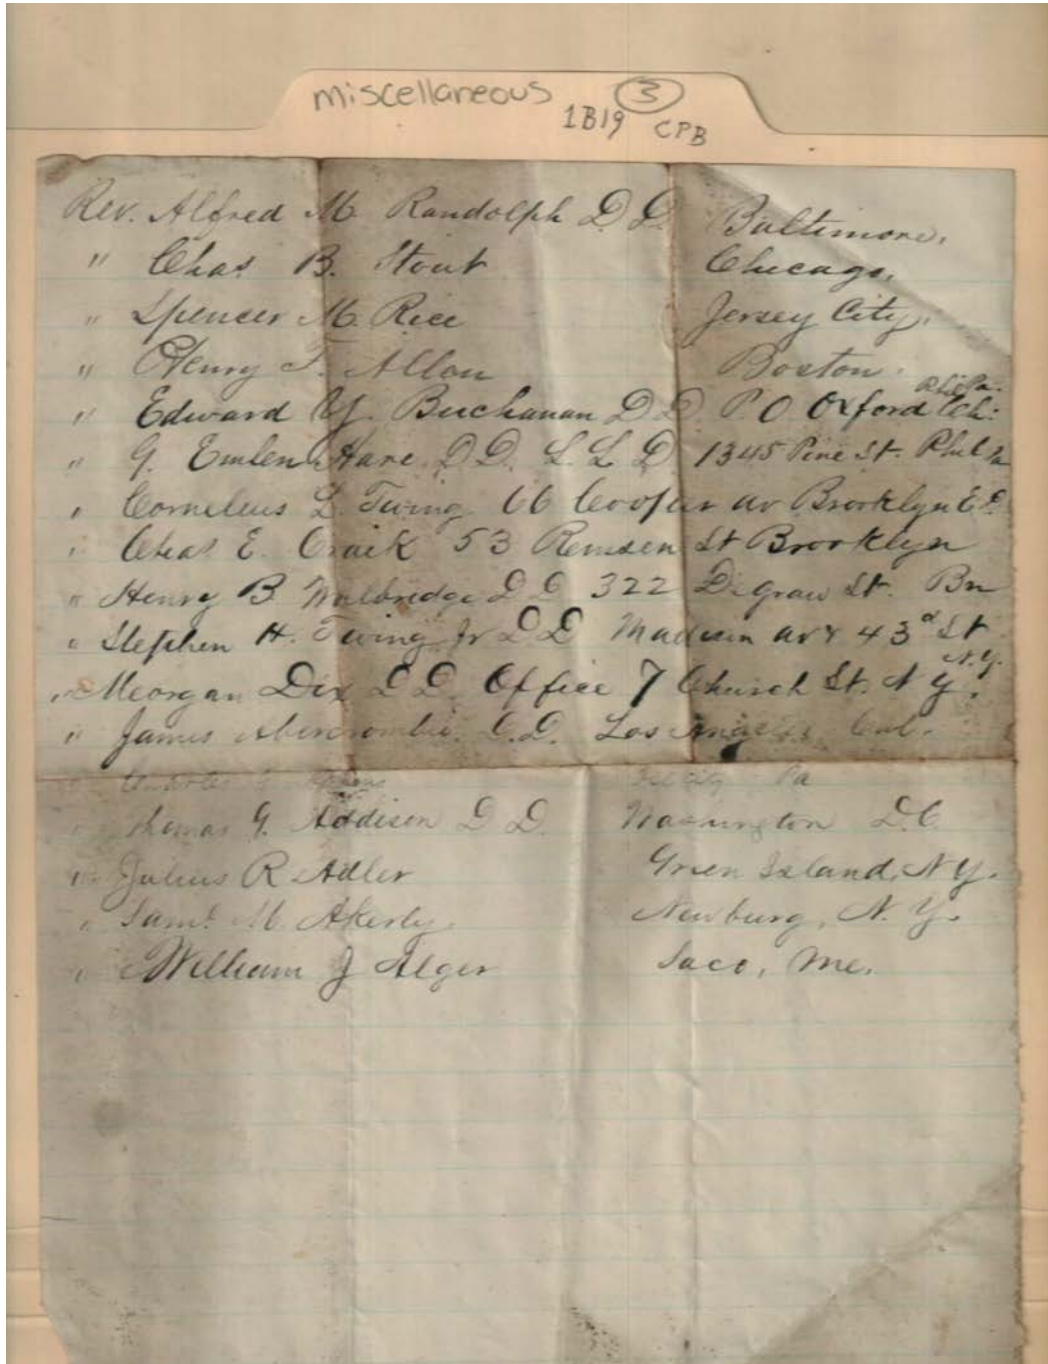 miscellaneous 3
1B19 CPB
Rev. Alfred M. Randolph D D. Baltimore.
" Chas B. Stout Chicago.
" Spencer M. Rice Jersey City.
" Henry F. Allen Boston.
" Edward Y. Buchanan D D. P. O. Oxford Ch: Phil Pa.
" G. Emlen Hare D D. L L D 1345 Pine St. Phil Pa
" Cornelius L. Twing 66 Cooper av Brooklyn E D.
" Chas. E. Craik 53 Remsen St Brooklyn
" Henry B Walbridge D D 322 Degraw St. Bn
" Stephen H. Jr D D Madison av & 43d St N.Y.
" Morgan Dix D D. Office 7 Church St. N Y.
" James Abercrombie. D.D. Los Angeles Cal.
" Charles Pa
" Thomas G. Addison D D. Washington D.C.
" Julius R Adler Green Island, N Y.
" Saml. M. Akerly. Newburg, N. Y.
" William J Alger Saco, Me.